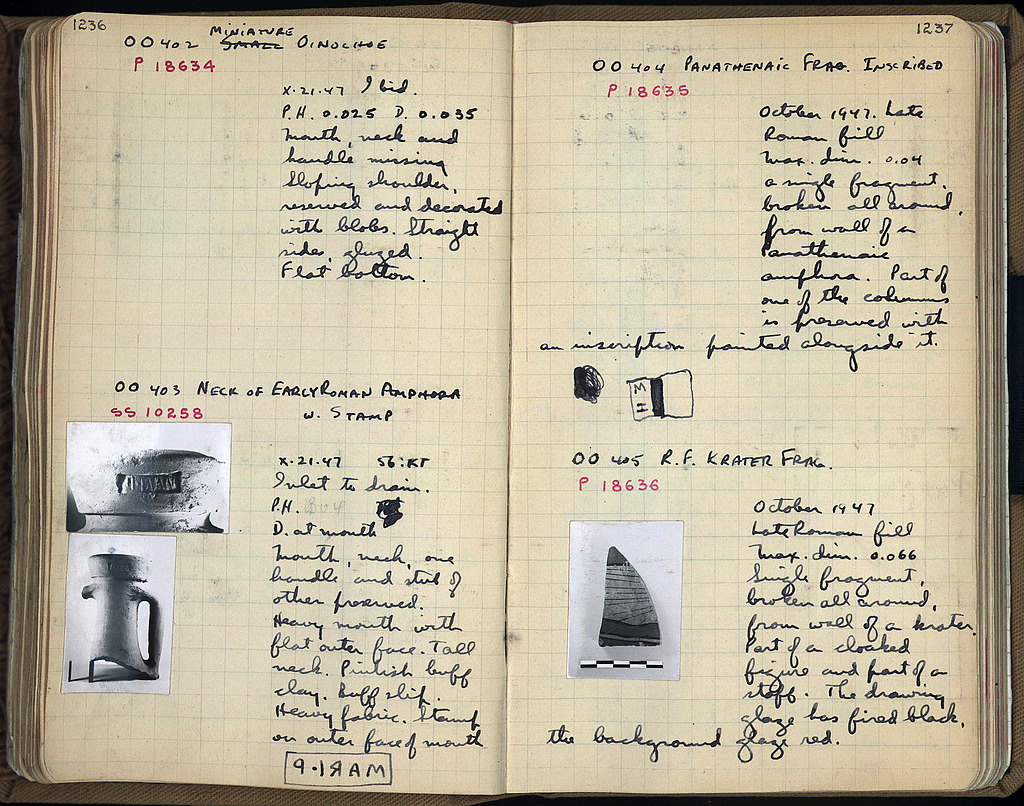 1236
OO 402 MINIATURE SMALL OINOCHOE
P 18634
X.21.47 Ibid.
P.H. 0.025 D. 0.035
Mouth, neck and
handle missing
Sloping shoulder,
reserved and decorated
with blobs. Straight
sides, glazed.
Flat bottom.
OO 403 NECK OF EARLY ROMAN AMPHORA
W. STAMP
SS 10258
X.21.47 56:KT
Inlet to drain.
P.H.
D. at mouth
Mouth, neck, one
handle and stub of
other preserved.
Heavy mouth with
flat outer face. Tall
neck. Pinkish buff
clay. Buff slip.
Heavy fabric. Stamp
on outer face of mouth
1237
OO 404 PANATHENAIC FRAG. INSCRIBED
P 18635
October 1947. Late
Roman fill
Max. dim. 0.04
a single fragment,
broken all around,
from wall of a
Panathenaic
amphora. Part of
one of the columns
is preserved with
an inscription painted alongside it.
OO 405 R.F. KRATER FRAG.
P 18636
October 1947
Late Roman fill
Max. dim. 0.066
Single fragment,
broken all around,
from wall of a krater.
Part of a cloaked
figure and part of a
staff. The drawing
glaze has fired black,
the background glaze red.